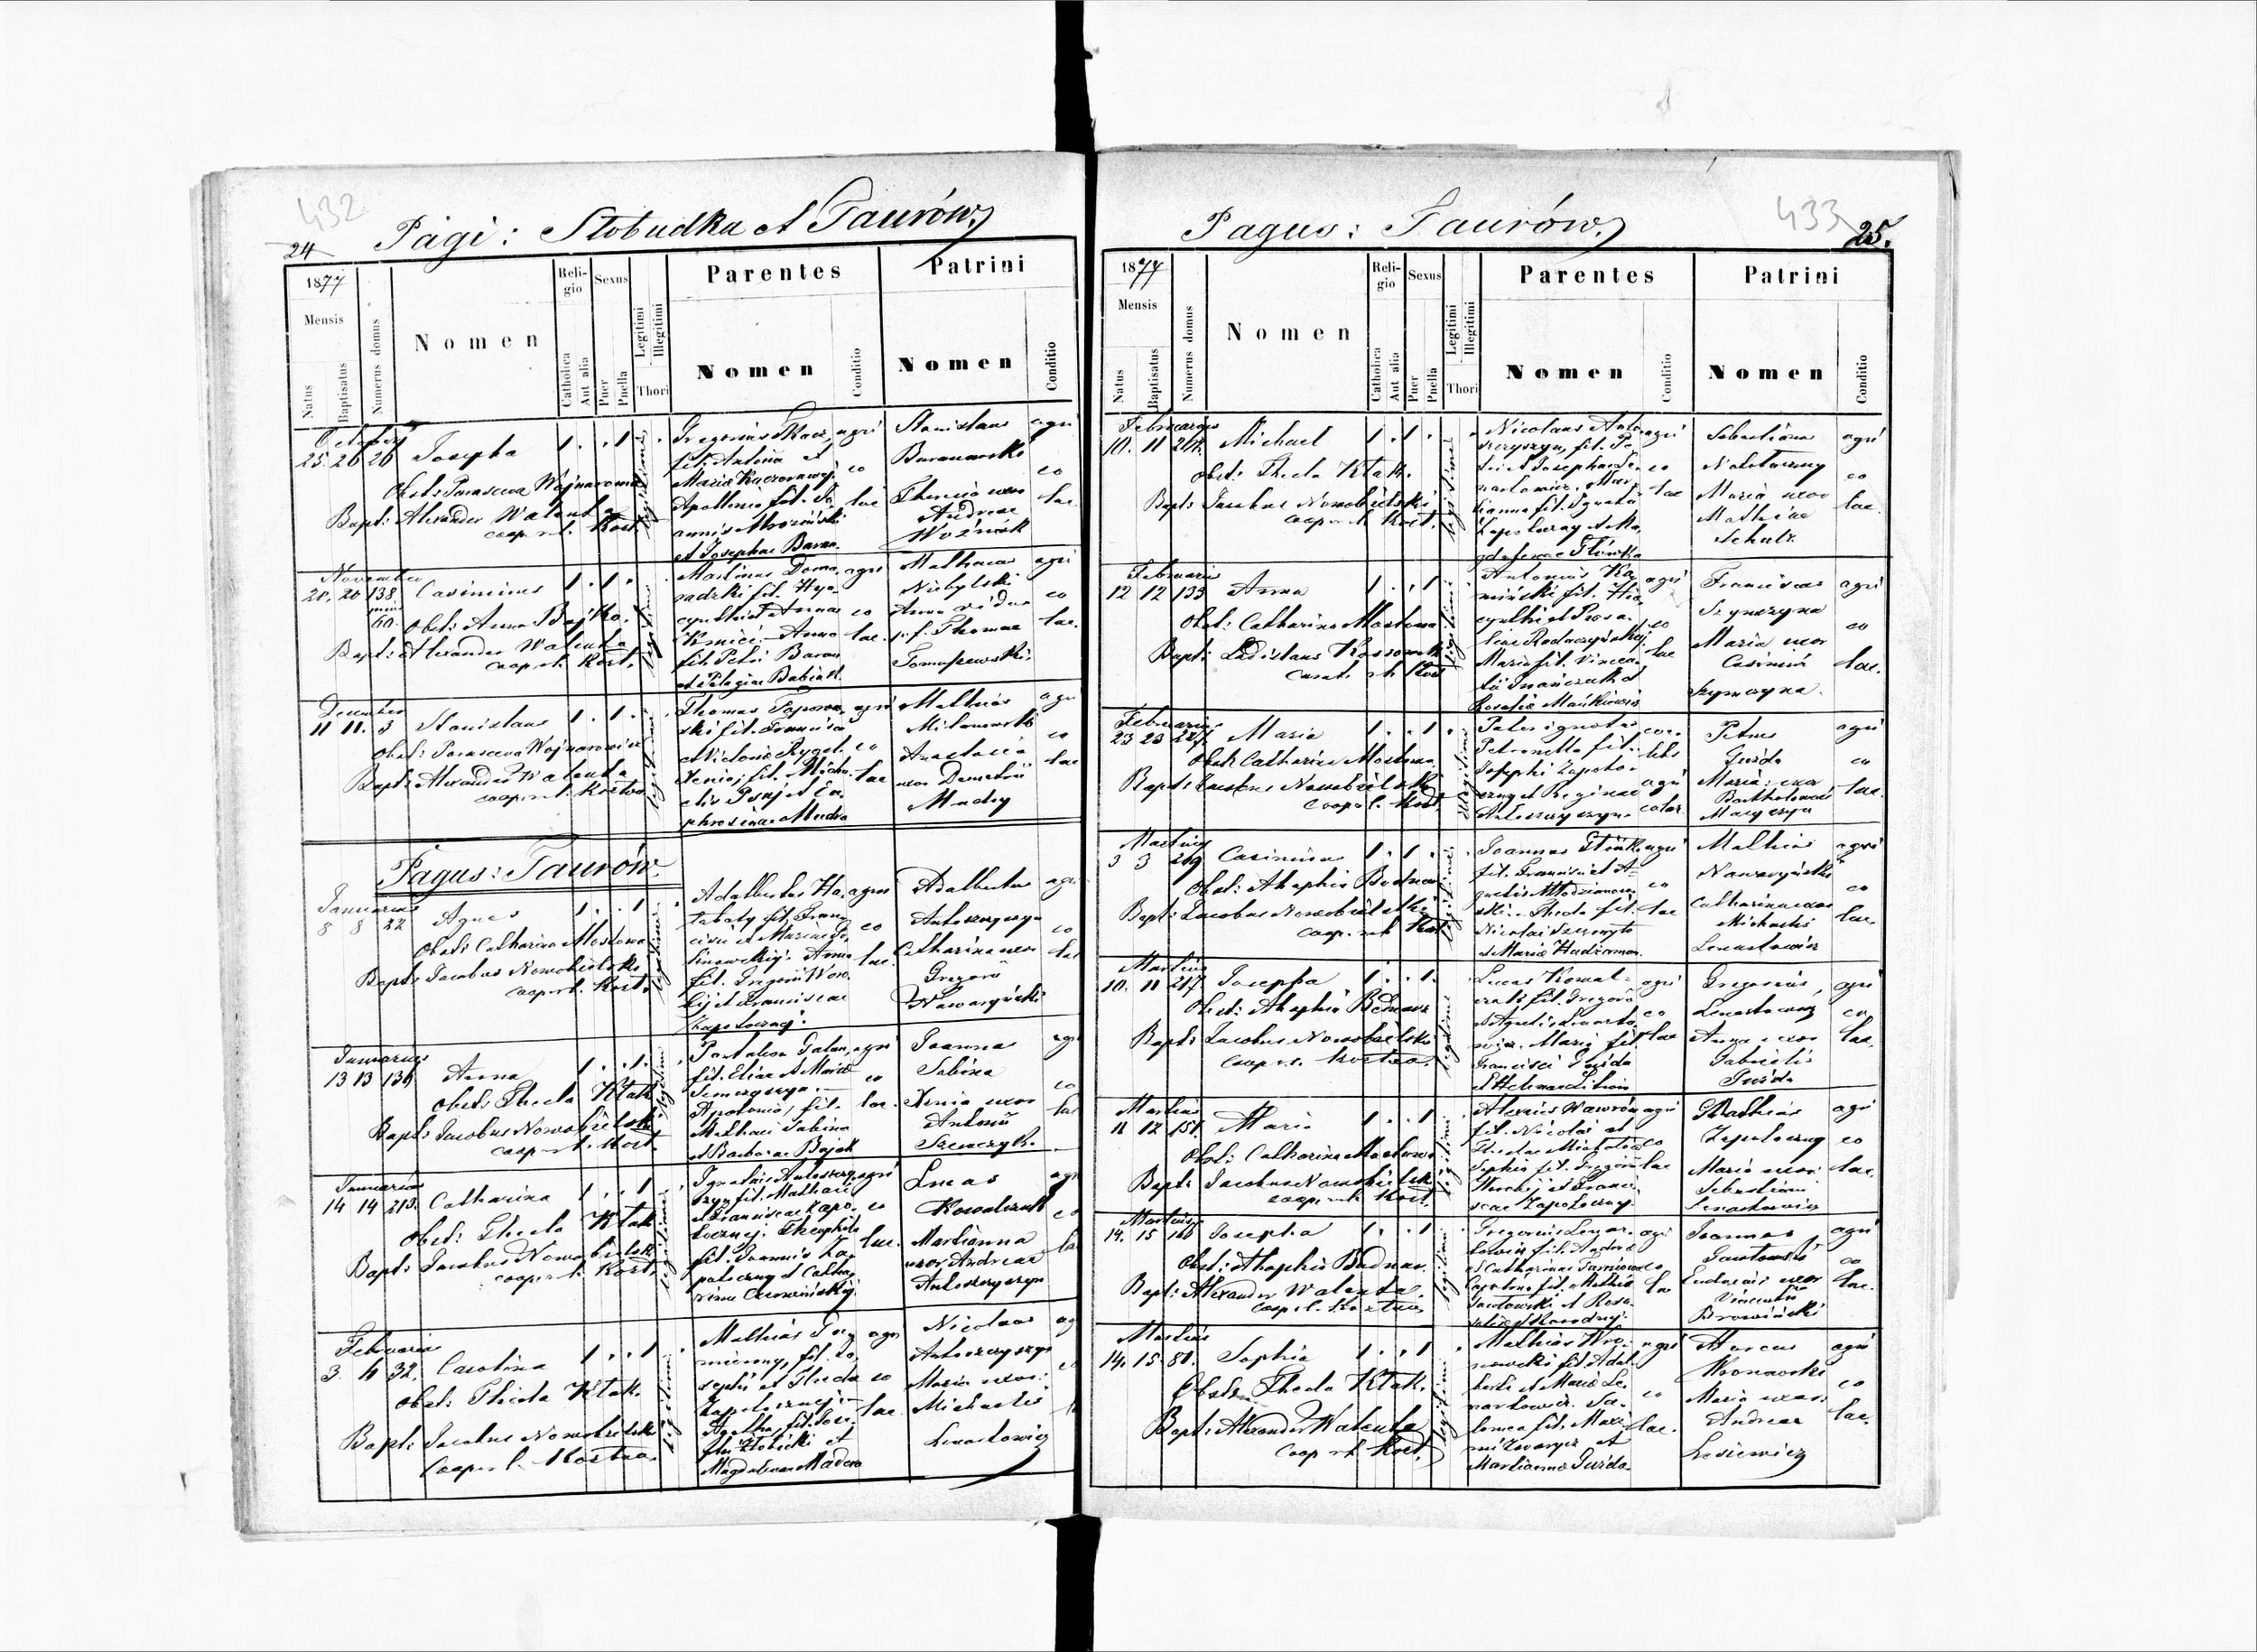 432
24
Pagi: Słobudka et Taurów
1877
Mensis
Natus
Baptisatus
Numerus domus
Nomen
Religio
Catholica
Aut alia
Sexus
Puer
Puella
Legitimi
Illegitimi
Thori
Parentes
Nomen
Conditio
Patrini
Nomen
Conditio
October
25. 26 26 Josepha 1 . . 1
Obst: Parasceva Wojnarowicz
Bapt: Alexander Walenta
coop. r.l. Kozt.
legitimi
Gregorius Tkacz,
fil. Antonii et
Mariae Kaczorowskiej
Apollonia fil. Jo
annis Mroziński
et Josephae Baran.
agri
co
lae
Stanislaus
Baranowski
Theresia uxor
Andreae
Woźniak
agri
co
lae.
November
20. 20 138 Casimirus 1 . 1 .
60.
Obst: Anna Bojko.
Bapt: Alexander Walenta
coop. r.l. Kozt.
legitimi
Martinus Doma
radzki fil. Hya
cynthi et Annae
Kmieć. Anna
fil. Petri Baran
et Pelagiae Babiak.
agri
co
lae.
Mathaeus
Niebylski
Anna vidua
p. f. Thomae
Tomaszewski.
agri
co
lae.
December
11 11. 3 Stanislaus 1 . 1 .
Obst: Parasceva Wojnarowicz
Bapt: Alexander Walenta
coop. r.l. Koztow
legitimi
Thomas Toporow
ski fil. Francisci
et Victoriae Rygel.
Xenia, fil. Micha
elis Psuj et Eu
phrosinae Mudra
agri
co
lae
Mathias
Milanowski
Anastasia
uxor Demetrii
Mudry
agri
co
lae
Pagus: Taurów.
Januarius
8 8 22 Agnes 1 . . 1
Obst: Catharina Mostowa
Bapt: Jacobus Nowobielski
coop. r.l. Kozt.
legitimi
Adalbertus Ha
tabaty fil. Fran
cisci et Mariae
Anna
fil. Gregorii
et Franciscae
Zapotoczny.
agri
co
lae.
Adalbertus
Antoszczyszyn
Catharina uxor
Gregorii
Nawaryński
agri
co
lae
Januarius
13 13 136 Anna 1 . . 1.
Obst: Thecla Ktak
Bapt: Jacobus Nowobielski
coop. r.l. Kozt.
legitimi
Pantaleon Galan,
fil. Eliae et Mariae
Semczyszyn.
Apolonia, fil.
Mathaei Sabina
et Barbarae Bojak
agri
co
lae.
Joannes
Sabina
Xenia uxor
Antonii
Szewczyk.
agri
co
lae
Januarius
14 14 213. Catharina 1 . . 1
Obst: Thecla Ktak
Bapt: Jacobus Nowobielski
coop. r.l. Kozt.
legitimi
Ignatius Antoszczy
szyn fil. Mathaei
et Franciscae Zapo
tocznej. Theophila
fil. Joannis Za
potoczny et Catha
rinae
agri
co
lae.
Lucas
Kowalczuk
Marianna
uxor Andreae
Antoszczyszyn
agri
co
lae
Februarius
3. 4 32. Carolina 1 . . 1
Obst: Thecla Ktak.
Bapt: Jacobus Nowobielski
Coop. r.l. Koztow.
legitimi
Mathias
fil. Jo
sephi et Theclae
Zapotocznej
Agatha, fil. Jose
phi Złobicki et
Magdalenae Madera
agri
co
lae.
Nicolaus
Antoszczyszyn
Maria uxor
Michaelis
Lenartowicz
433
25.
Pagus: Taurów.
1877
Mensis
Natus
Baptisatus
Numerus domus
Nomen
Religio
Catholica
Aut alia
Sexus
Puer
Puella
Legitimi
Illegitimi
Thori
Parentes
Nomen
Conditio
Patrini
Nomen
Conditio
Februarius
10. 11 Michael 1 . 1 .
Obst: Thecla Ktak.
Bapt: Jacobus Nowobielski
coop. r.l. Kozt.
legitimi
Nicolaus Anto
szczyszyn, fil. Pe
tri et Josephae Le
nartowicz. Mar
ianna fil. Ignatii
Zapotoczny et Ma
gdalenae Główka
agri
co
lae
Sebastianus
Zapotoczny
Maria uxor
Mathiae
Schulz
agri
co
lae.
Februarius
12 12 133 Anna 1 . . 1
Obst: Catharina Mostowa
Bapt: Ladislaus Kossowski
curat. r.l. Kozt
legitimi
Antonius Ka
miński fil. Hia
cynthi et Rosa
liae Radaczyńskiej
Maria fil. Vincen
tii Iwańczuk et
Rosaliae Mańkiewicz
agri
co
lae
Franciscus
Szymczyna
Maria uxor
Casimiri
Szymczyna.
agri
co
lae.
Februarius
23 23 227 Maria 1 . . 1 .
Obst: Catharina Mostowa
Bapt: Jacobus Nowobielski
coop. r.l. Kozt.
illegitimi
Pater ignotus
Petronella fil.
Josephi Zapoto
czny et Reginae
Antoszczyszyn.
coe
lebs
agri
colar.
Petrus
Guzda
Maria uxor
Bartholomaei
Maczyszyn
agri
co
lae.
Martius
3 3 219 Casimirus 1 . 1 .
Obst: Ahaphia Bednarz
Bapt: Jacobus Nowobielski
coop. r.l. Kozt
legitimi
Joannes Główka
fil. Francisci et A
gnetis Młodzianow
ski. Thecla fil.
Nicolai
et Mariae Hudziorman
agri
co
lae
Mathias
Nawaryński
Catharina uxor
Michaelis
Lenartowicz
agri
co
lae.
Martius
10. 11 217 Josepha 1 . . 1.
Obst: Ahaphia Bednarz
Bapt: Jacobus Nowobielski
coop. r.l. Koztow.
legitimi
Lucas Kowal
czuk fil. Gregorii
et Agnetis Lenarto
wicz. Maria fil.
Francisci Guzda
et Helenae Litwin
agri
co
lae
Gregorius
Lenartowicz
Anna uxor
Gabrielis
Guzda
agri
co
lae.
Martius
11 12 151. Maria 1 . . 1
Obst: Catharina Mostowa
Bapt: Jacobus Nowobielski
coop. r.l. Kozt.
legitimi
Alexius Wawrów
fil. Nicolai et
Theclae
Sophia fil. Gregorii
et Franci
scae Zapotoczny.
agri
co
lae
Mathias
Zapotoczny
Maria uxor
Sebastiani
Lenartowicz
agri
co
lae.
Martius
14. 15 160 Josepha 1 . . 1
Obst: Ahaphia Bednarz.
Bapt: Alexander Walenta.
coop. r.l. Koztow.
legitimi
Gregorius Lenar
towicz fil. Andreae
et Catharinae
Carolina fil. Mathiae
et Rosa
liae
agri
co
lae
Joannes
Eudoxia uxor
Vincentii
Browiński
agri
co
lae.
Martius
14. 15 81. Sophia 1 . . 1
Obst. Thecla Ktak.
Bapt: Alexander Walenta
Coop r.l. Kozt.
legitimi
Mathias Wro
nowski fil. Adal
berti et Mariae Le
nartowicz. Sa
lomea fil. Maxi
mi Zwarycz et
Mariannae Guzda.
agri
co
lae.
Marcus
Wronowski
Maria uxor
Andreae
Lesiewicz
agri
co
lae.